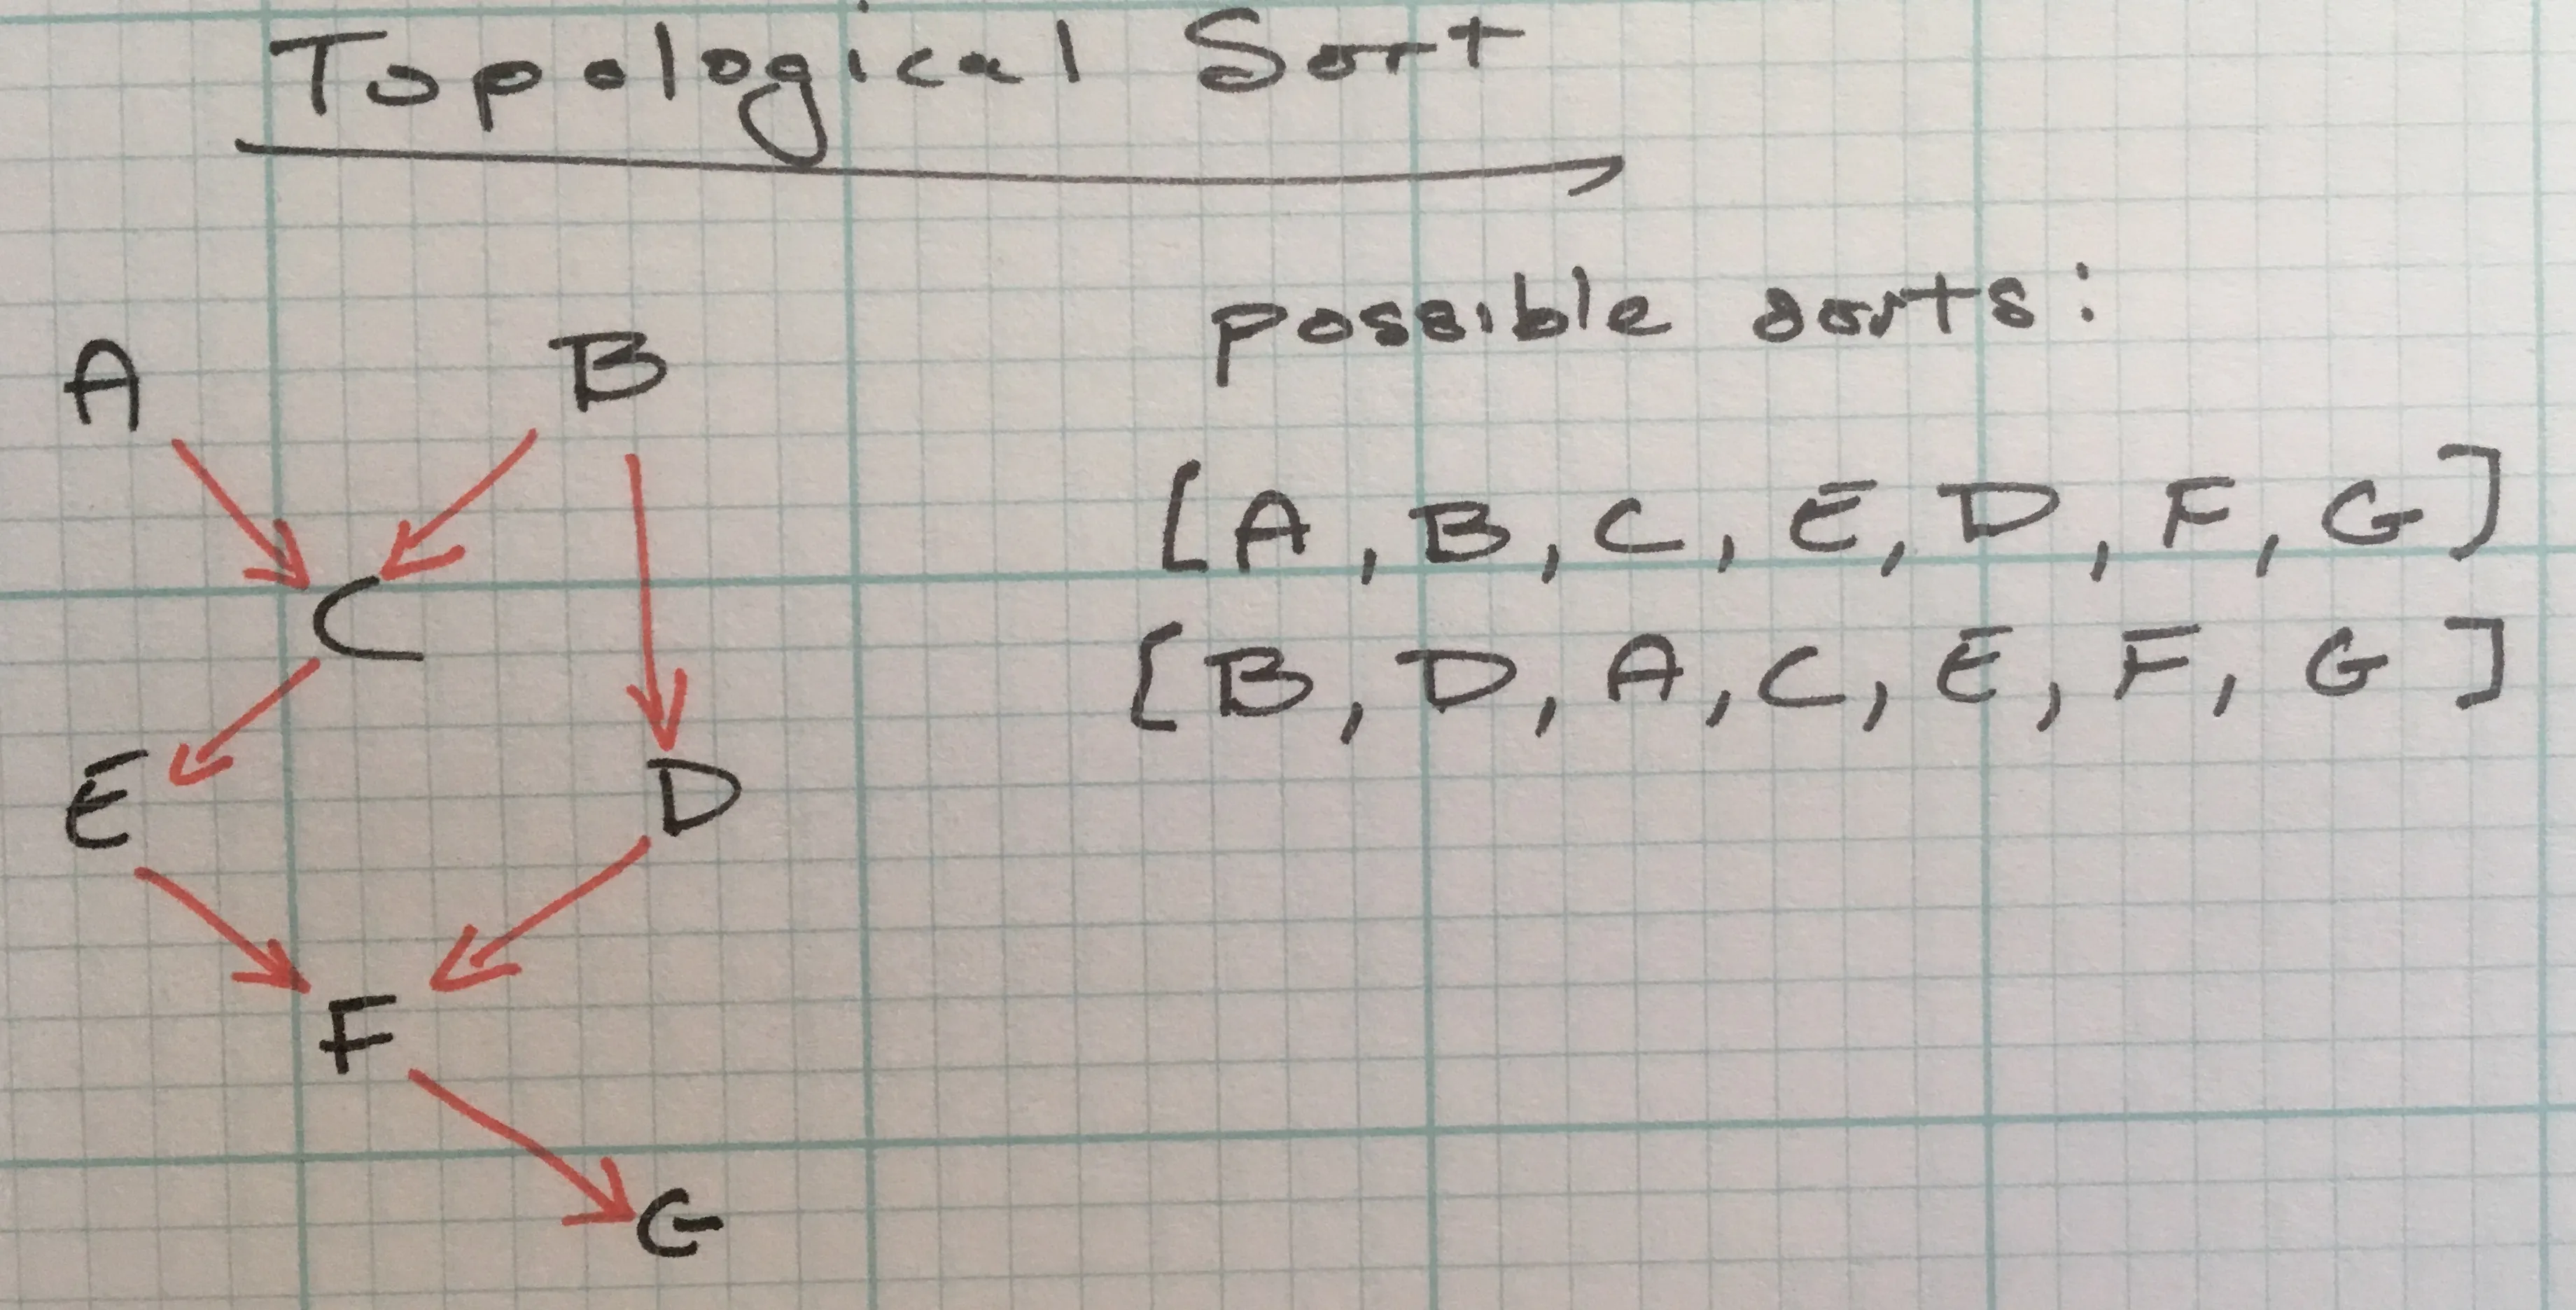 Topological Sort
possible sorts:
A B
[A, B, C, E, D, F, G]
C
[B, D, A, C, E, F, G]
E D
F
G